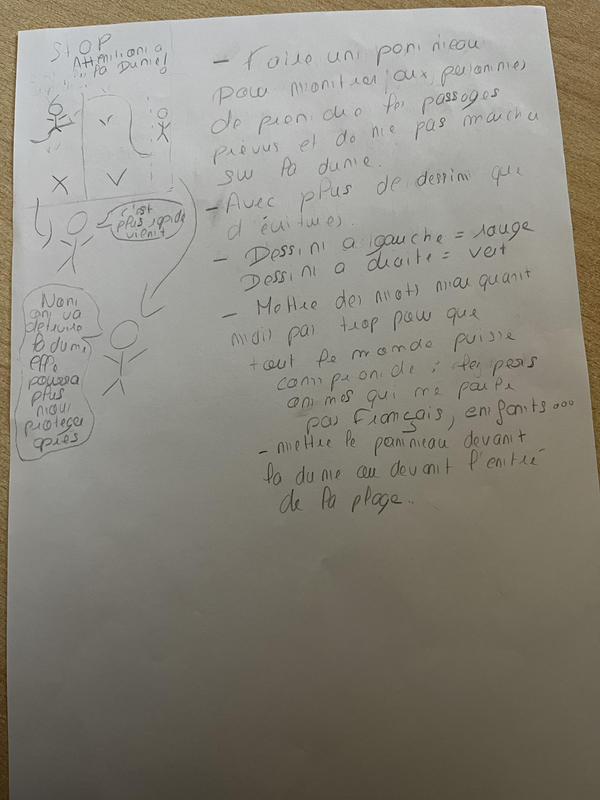 STOP
Attention à
la Dune!
c'est
plus rapide
vient
Non
on va
detruire
la dune
elle
poura
plus
nous
proteger
après
- Faire un panneau
pour montrer aux personnes
de prendre les passages
prévus et de ne pas marcher
sur la dune.
- Avec plus de dessin que
d'écritures.
- Dessin a gauche = rouge
Dessin a droite = vert
- Mettre des mots marquant
mais pas trop pour que
tout le monde puisse
comprende : les pers
onnes qui ne parle
pas Français, enfants...
- mettre le panneau devant
la dune ou devant l'entrée
de la plage.